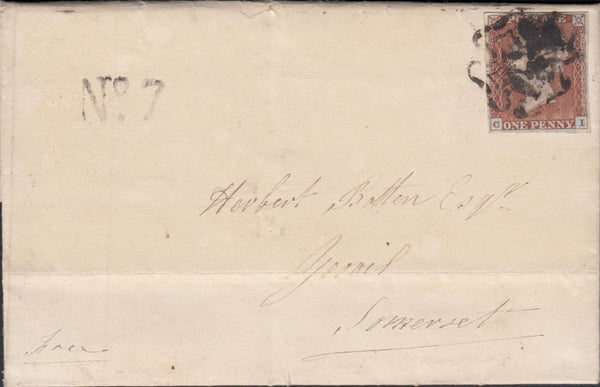 No. 7
C ONE PENNY I
Herbert Batten Esqr
Yeovil
Somerset
free